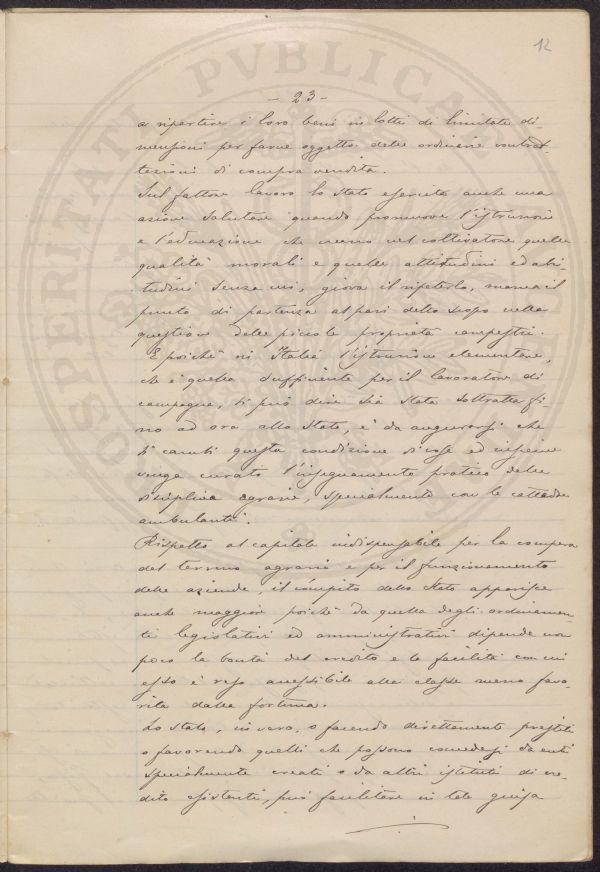 12
- 23 -
a ripartire i loro beni in lotti di limitate di-
mensioni per farne oggetto delle ordinarie contrat-
tazioni di compra vendita.
Sul fattore lavoro lo Stato esercita anche una
azione salutare quando promuove l'istruzione
e l'educazione che creano nel coltivatore quelle
qualità morali e quelle attitudini ed abi-
tudini senza cui, giova il ripeterlo, manca il
punto di partenza al pari dello scopo nella
questione delle piccole proprietà campestri.
E poichè in Italia l'istruzione elementare,
che è quella sufficiente per il lavoratore di
campagna, si può dire sia stata sottratta fi-
no ad ora allo Stato, è da augurarsi che
si cambi questa condizione di cose ed insieme
venga curato l'insegnamento pratico delle
discipline agrarie, specialmente con le cattedre
ambulanti.
Rispetto al capitale indispensabile per la compera
del terreno agrario e per il funzionamento
delle aziende, il cómpito dello Stato apparisce
anche maggiore poichè da quella degli ordinamen-
ti legislativi ed amministrativi dipende non
poco la bontà del credito e la facilità con cui
esso è reso accessibile alla classe meno favo-
rita dalla fortuna.
Lo Stato, in vero, o facendo direttamente prestiti
o favorendo quelli che possono concedersi da enti
specialmente creati o da altri istituti di cre-
dito esistenti, può facilitare in tale guisa
PROSPERITATI PVBLICAE